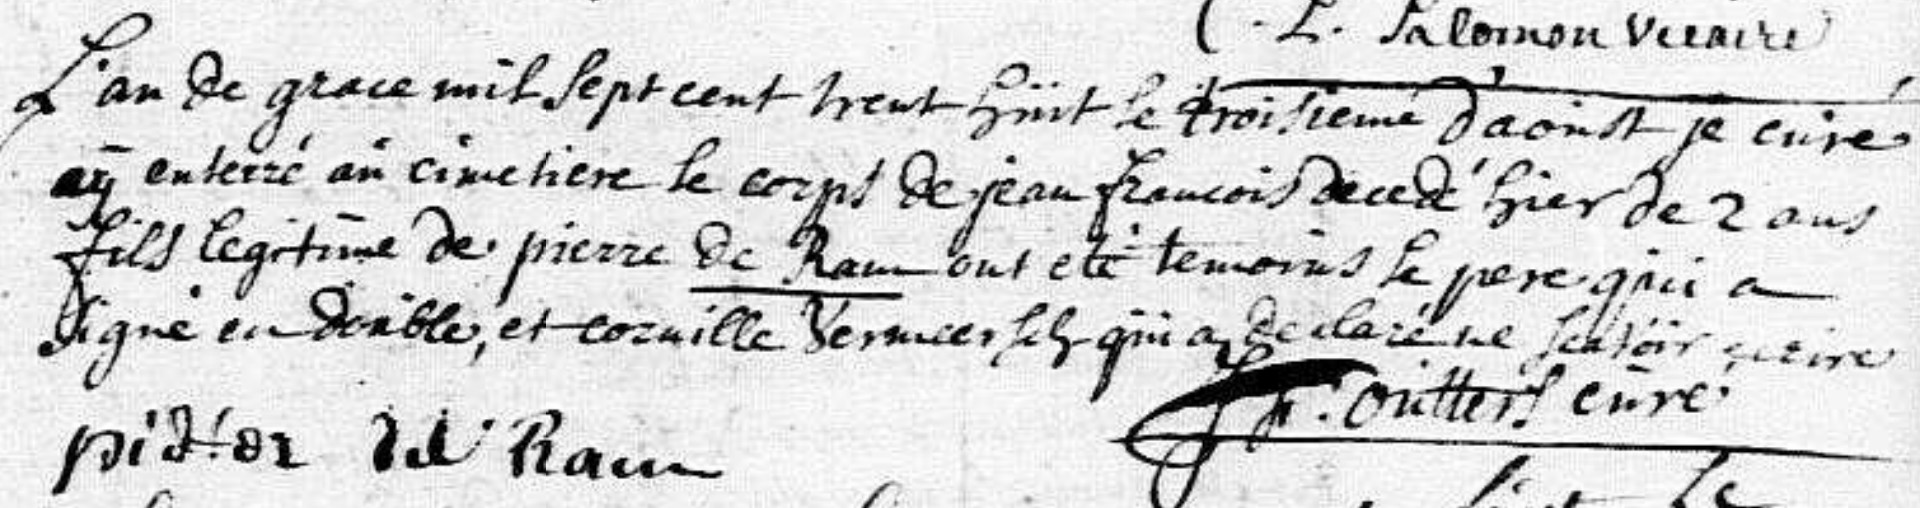 L. Salomon vicaire
L'an de grace mil sept cent trent hüit le troisieme d'aoust je cure
aÿ enterré aü cimetiere le corps de jean francois decedé hier de 2 ans
fils legitime de pierre de Ram ont eté temoins le pere qui a
signé en double, et cornille Vermeersch qui a declaré ne scavoir ecrire
pieter de Ram
f. Outters cüré